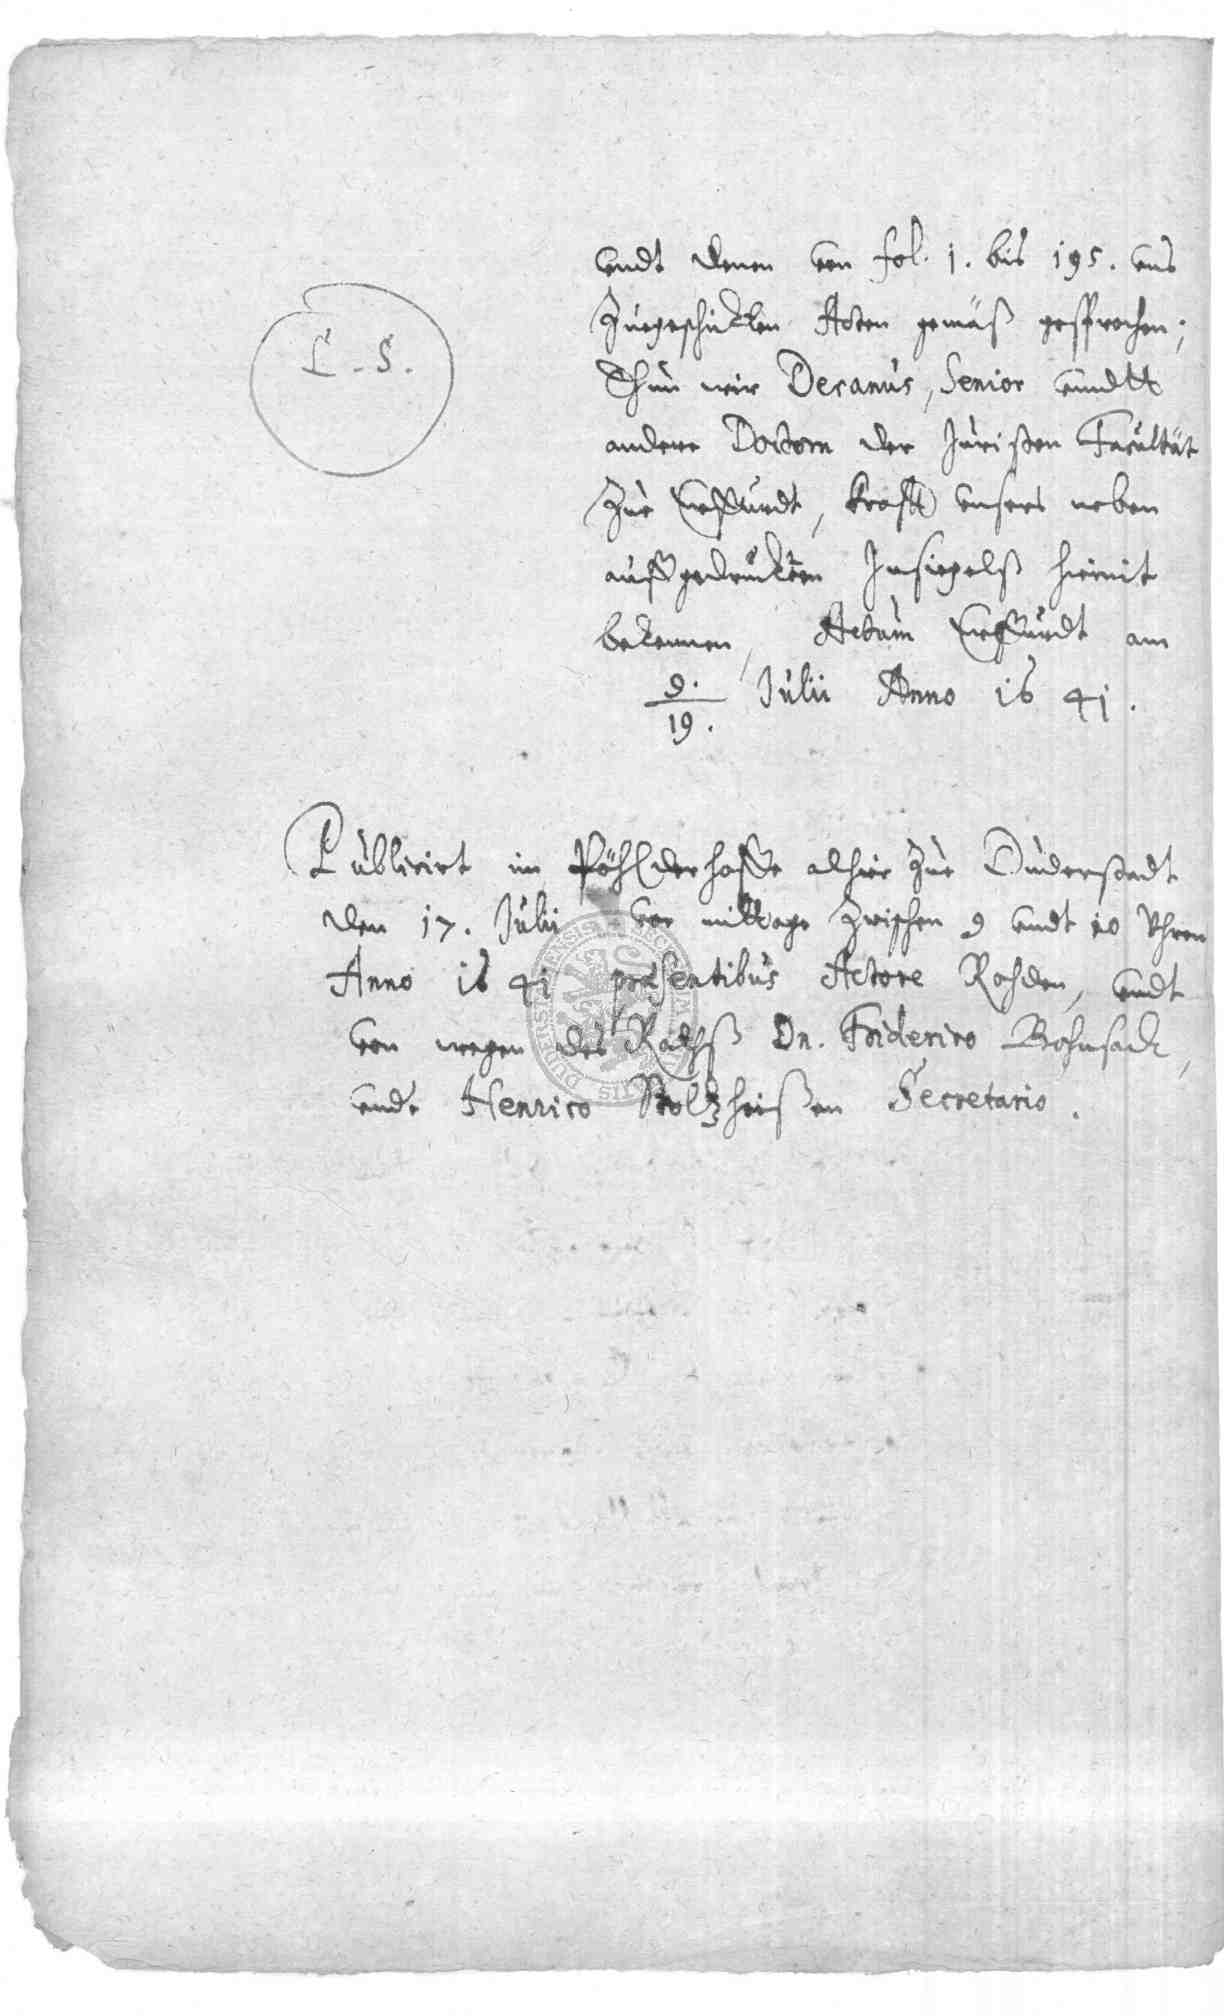 L. S.
undt denen von fol. 1. bis 195. uns
zuegeschickten Acten gemäß gesprochen;
Thun wir Decanus, Senior undtt
andere Doctorn der Juristen Facultät
zue Erffurdt, krafft unsers neben
auffgedruckten Insiegelß hiemit
bekennen, Actum Erffurdt am
9./19. Julii Anno 1641.
Publicirt im Pöhlderhoffe alhier zue Duderstadt
den 17. Julii vor mittage zwischen 9 undt 10 Uhren
Anno 1641 præsentibus Actore Rohden, undt
von wegen des Rathß Dn. Friderico Bohnsack,
undt Henrico Stoltzheißen Secretario.